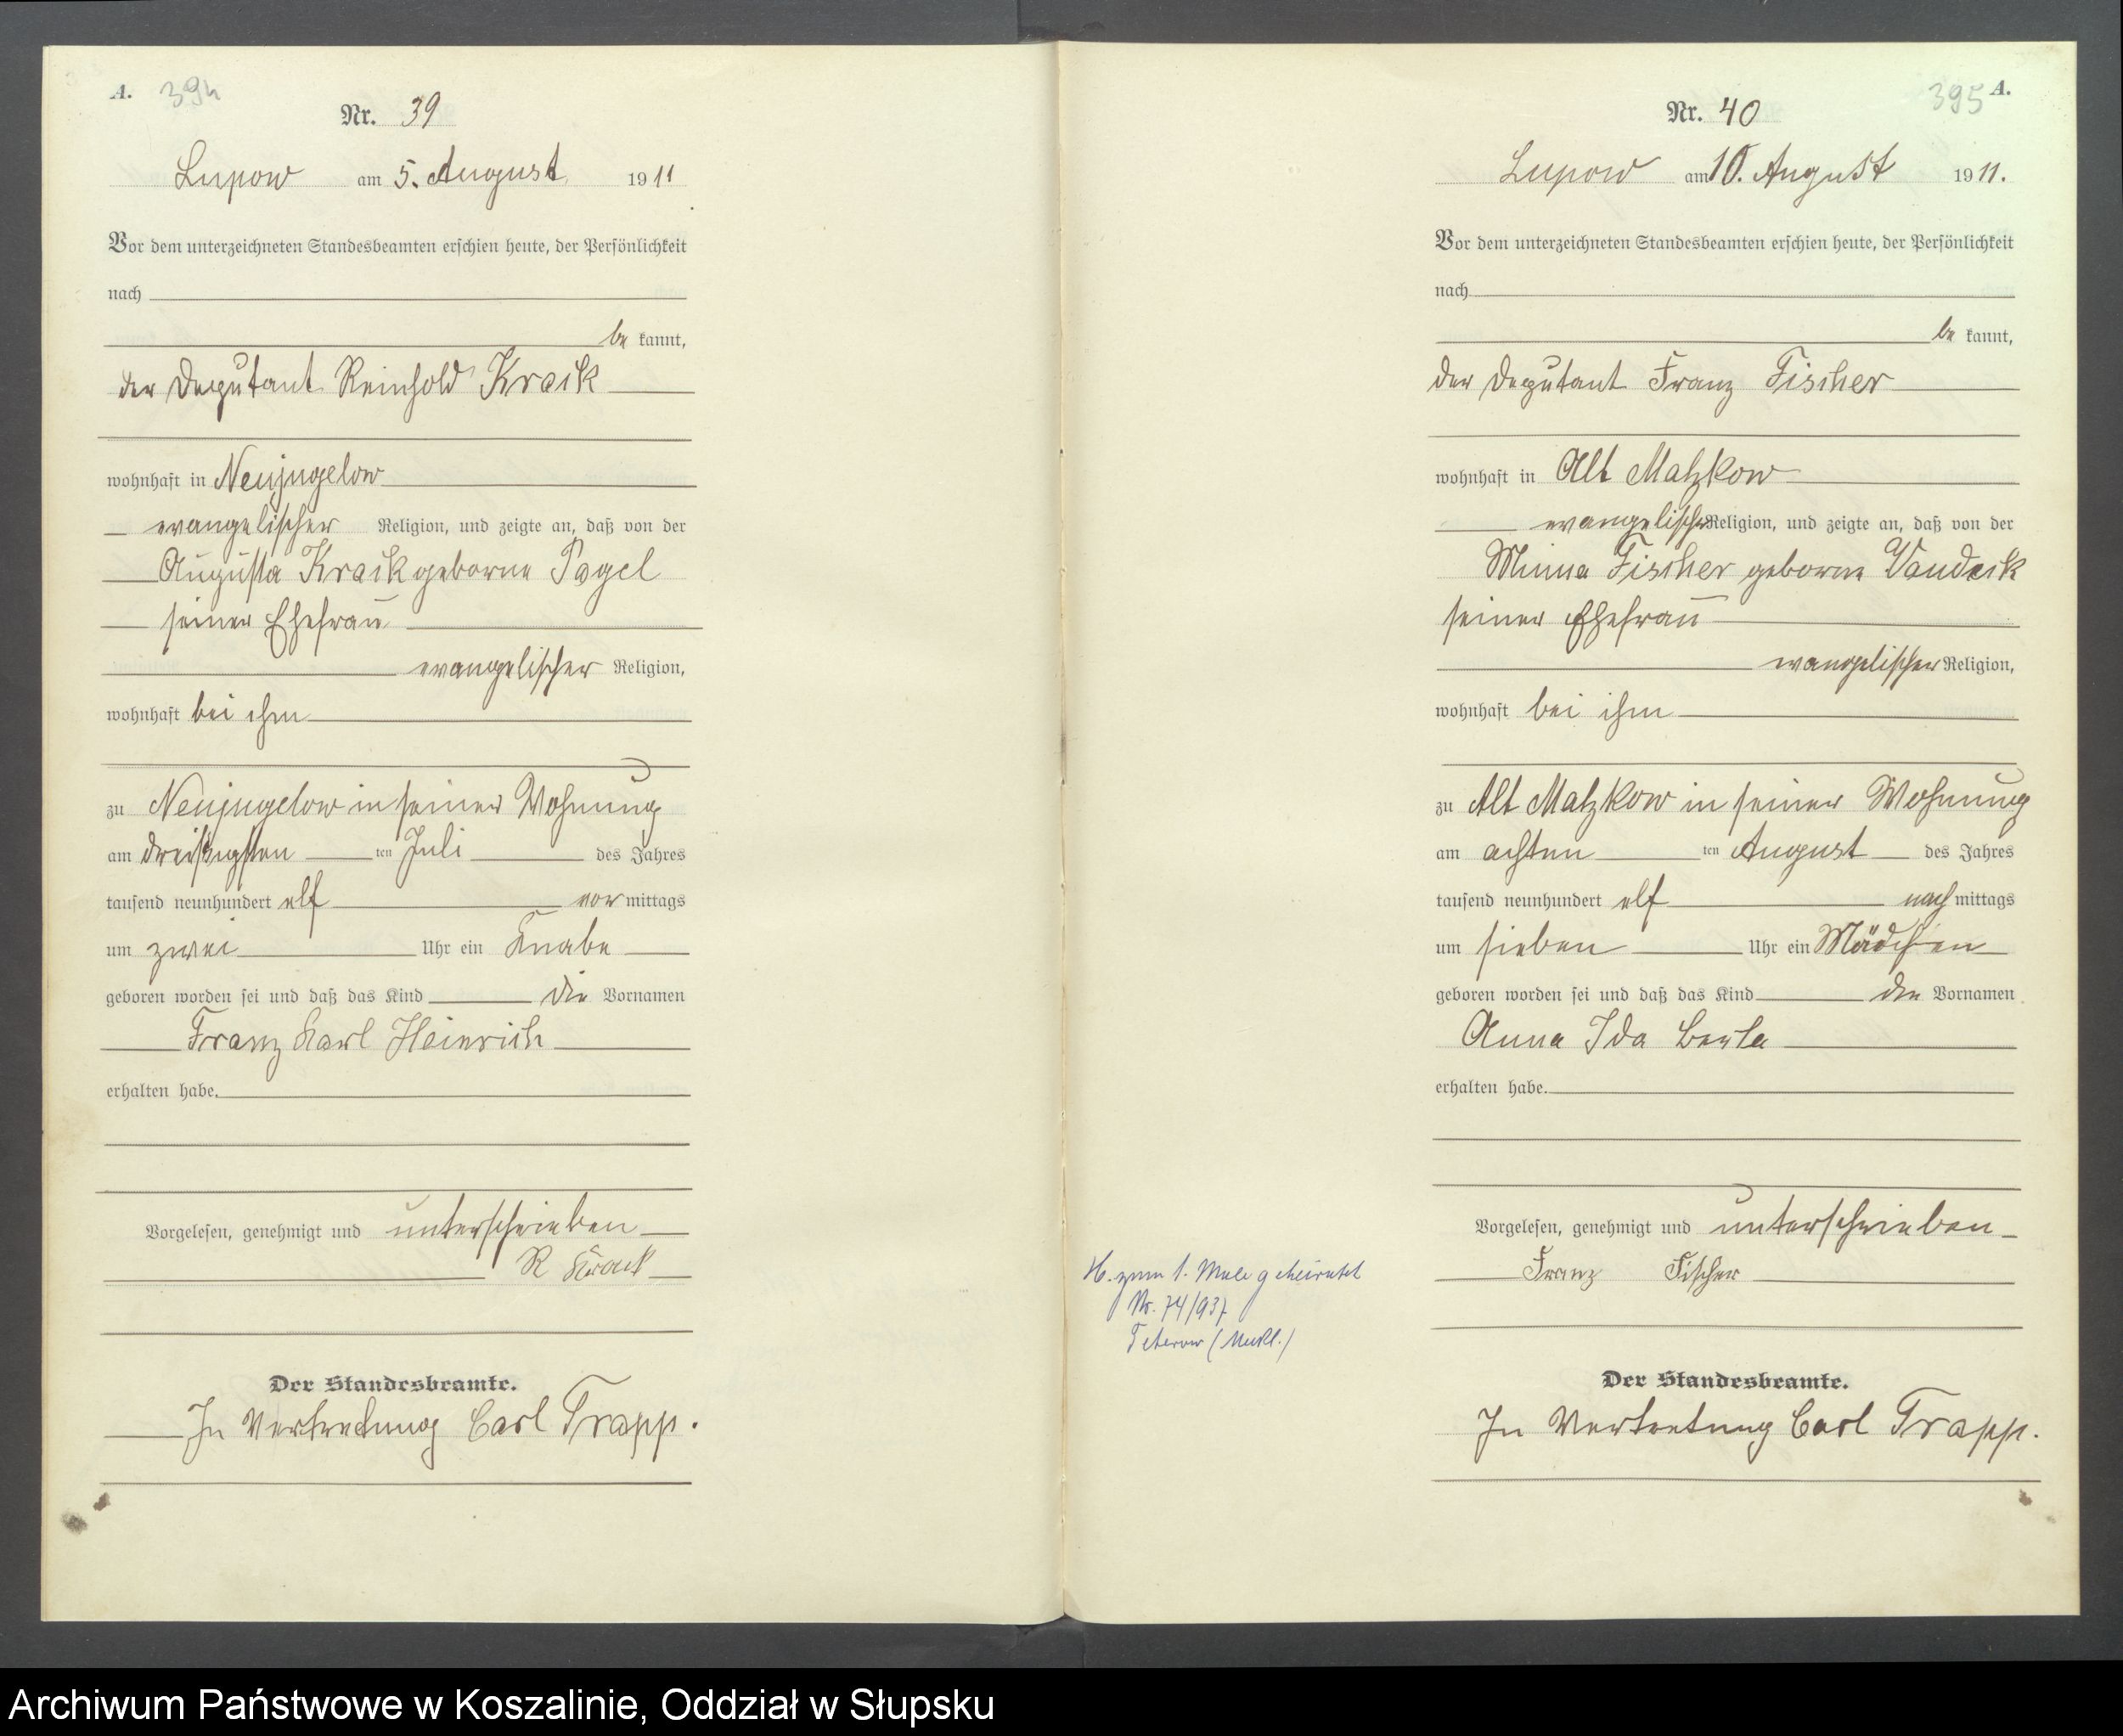 A. 394
Nr. 39
Lupow am 5. August 1911
Vor dem unterzeichneten Standesbeamten erschien heute, der Persönlichkeit
nach
be kannt,
der Deputant Reinhold Krack
wohnhaft in Neujugelow
evangelischer Religion, und zeigte an, daß von der
Augusta Krack geborne Pagel
seiner Ehefrau
evangelischer Religion,
wohnhaft bei ihm
zu Neujugelow in seiner Wohnung
am dreißigsten ten Juli des Jahres
tausend neunhundert elf vor mittags
um zwei Uhr ein Knabe
geboren worden sei und daß das Kind die Vornamen
Franz Karl Heinrich
erhalten habe.
Vorgelesen, genehmigt und unterschrieben
R Krack
Der Standesbeamte.
In Vertretung Carl Trapp.
395 A.
Nr. 40
Lupow am 10. August 1911.
Vor dem unterzeichneten Standesbeamten erschien heute, der Persönlichkeit
nach
be kannt,
der Deputant Franz Fischer
wohnhaft in Alt Matzkow
evangelischer Religion, und zeigte an, daß von der
Minna Fischer geborne
seiner Ehefrau
evangelischer Religion,
wohnhaft bei ihm
zu Alt Matzkow in seiner Wohnung
am achten ten August des Jahres
tausend neunhundert elf nach mittags
um sieben Uhr ein Mädchen
geboren worden sei und daß das Kind die Vornamen
Anna Ida Berta
erhalten habe.
Vorgelesen, genehmigt und unterschrieben
Franz Fischer
H. zum 1. Male geheiratet
Nr. 74/937
Teterow (Meckl.)
Der Standesbeamte.
In Vertretung Carl Trapp.
Archiwum Państwowe w Koszalinie, Oddział w Słupsku